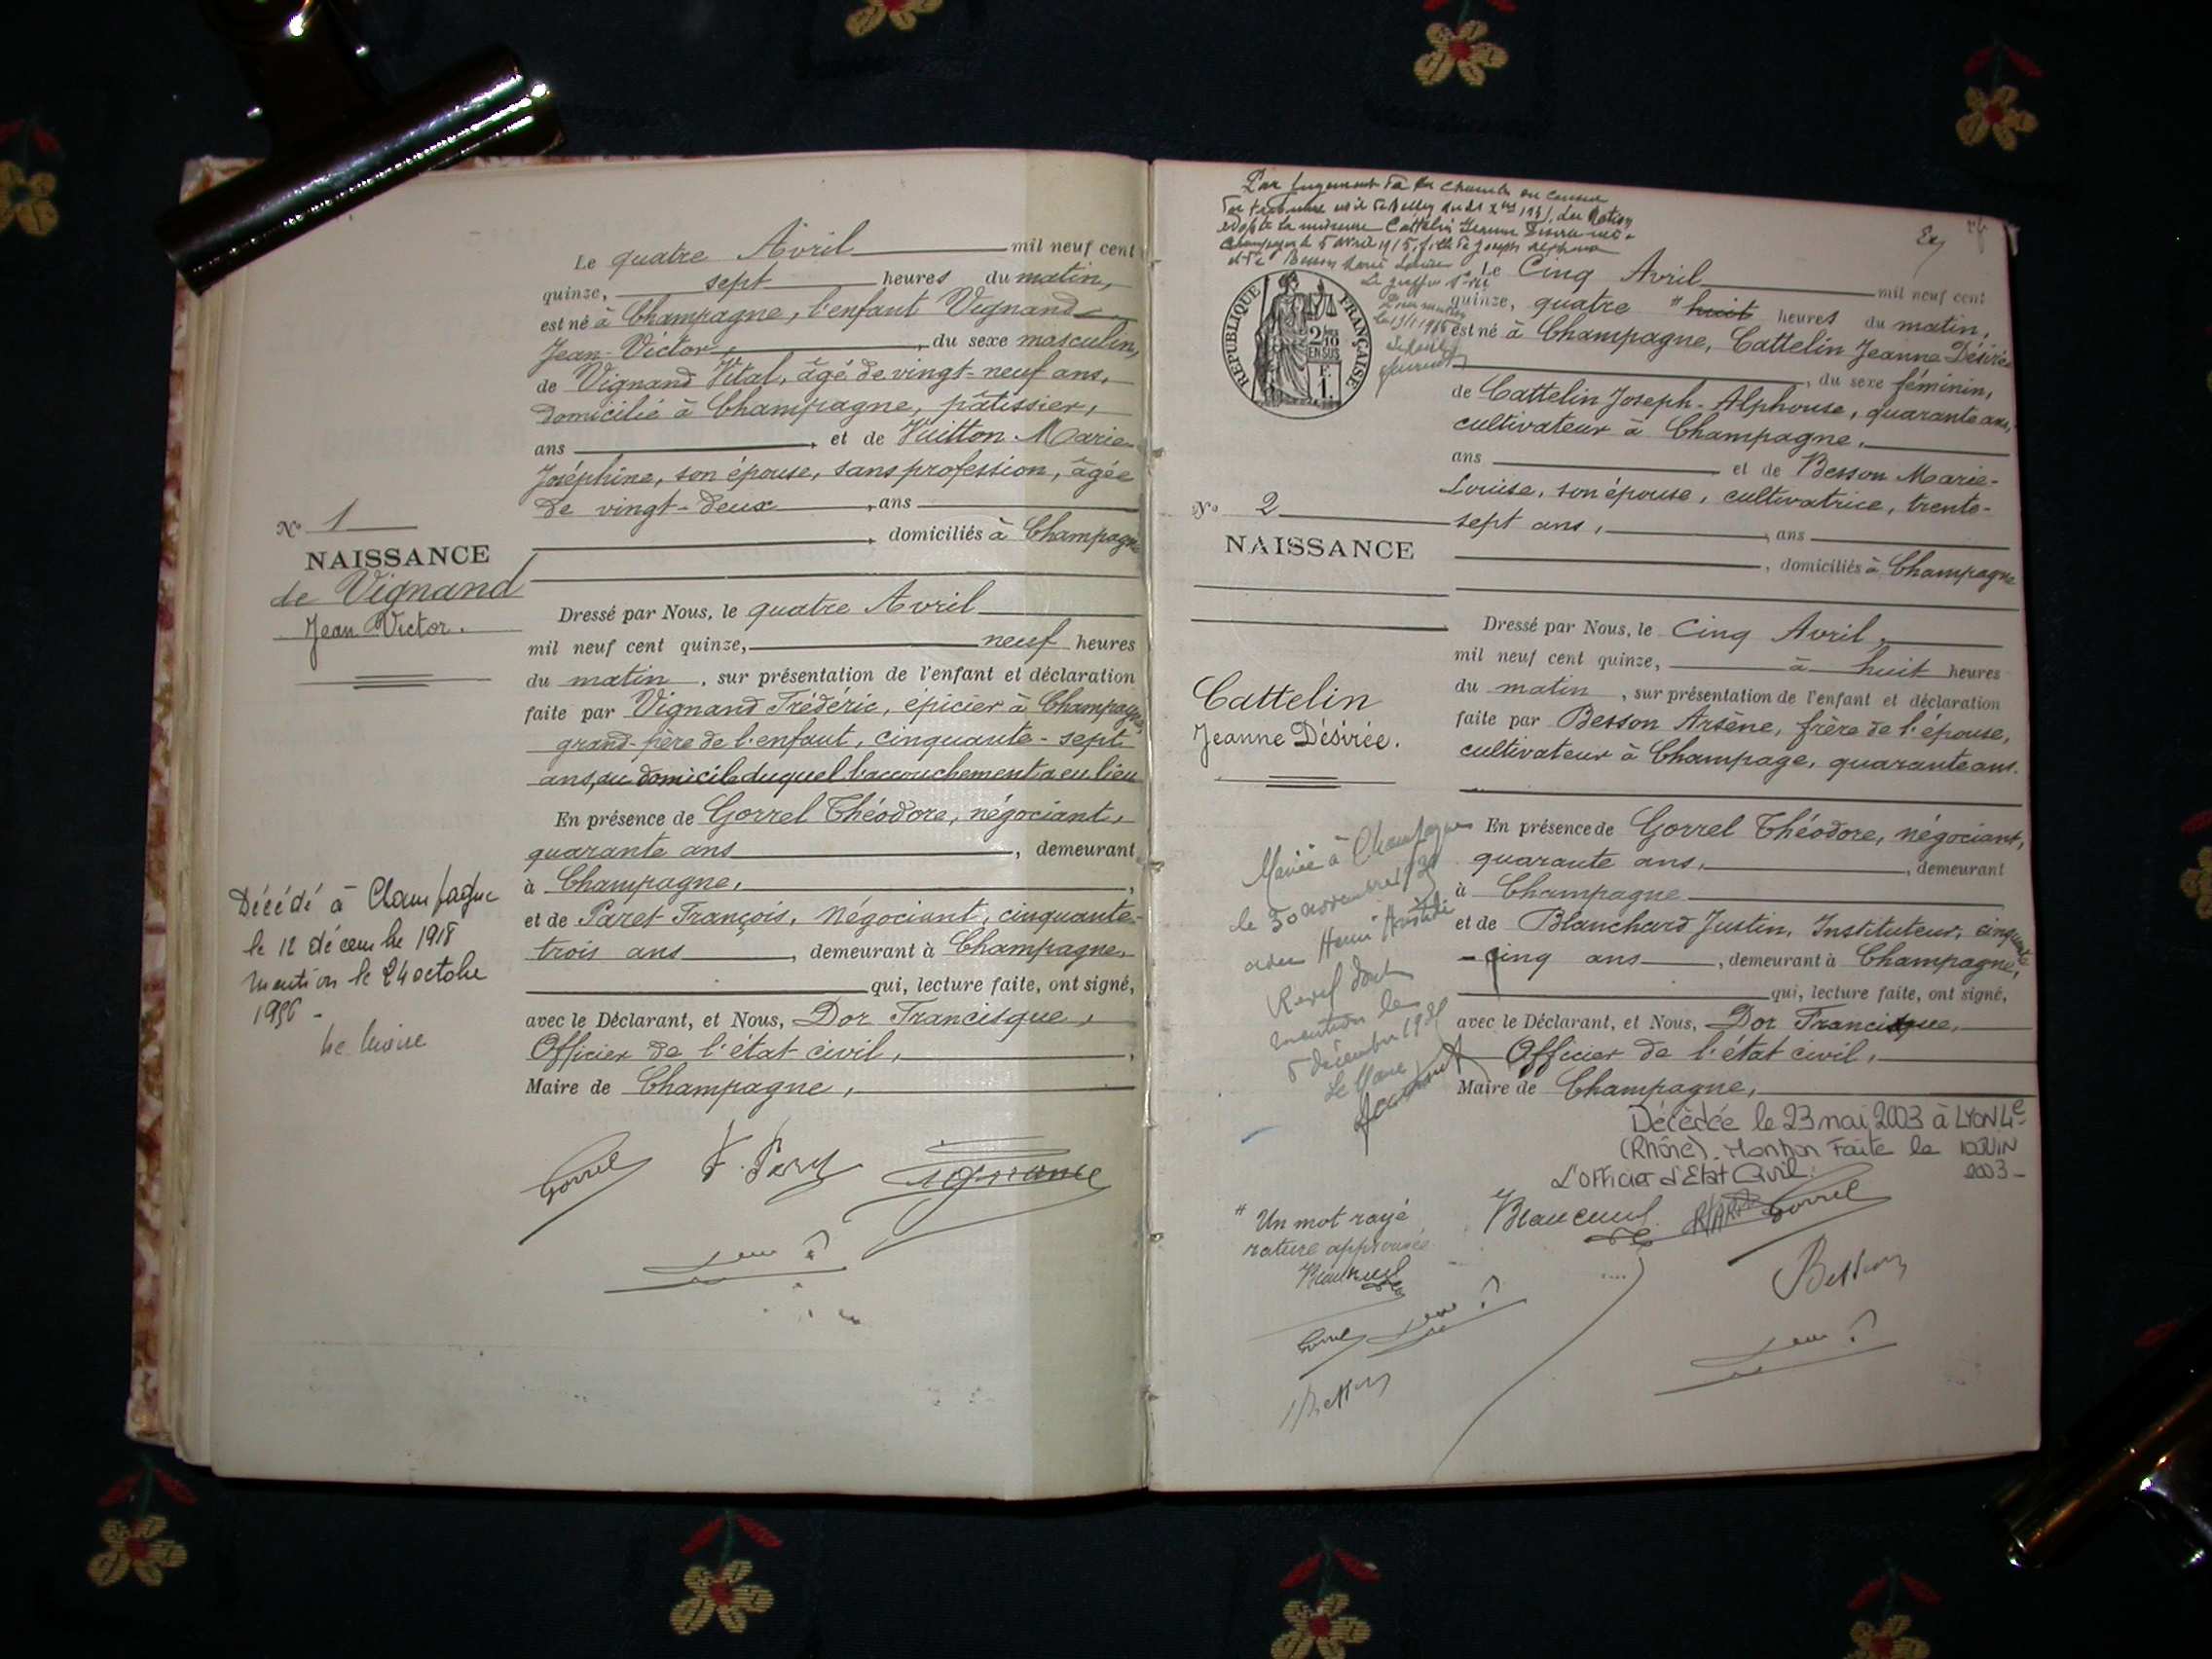 Le quatre Avril mil neuf cent
quinze, sept heures du matin,
est né à Champagne, l'enfant Vignand
Jean-Victor, du sexe masculin,
de Vignand Vital, âgé de vingt-neuf ans,
domicilié à Champagne, pâtissier,
ans , et de Vuitton Marie
Joséphine, son épouse, sans profession, âgée
de vingt-deux , ans
, domiciliés à Champagne
No 1
NAISSANCE
de Vignand
Jean Victor.
Dressé par Nous, le quatre Avril
mil neuf cent quinze, neuf heures
du matin , sur présentation de l'enfant et déclaration
faite par Vignand Frédéric, épicier à Champagne,
grand-père de l'enfant, cinquante-sept
ans, au domicile duquel l'accouchement a eu lieu
En présence de Gorrel Théodore, négociant,
quarante ans , demeurant
à Champagne,
et de Paret François, négociant, cinquante-
trois ans , demeurant à Champagne
qui, lecture faite, ont signé,
avec le Déclarant, et Nous, Dor Francisque,
Officier de l'état civil,
Maire de Champagne,
Décédé à Champagne
le 12 décembre 1918
mention le 24 octobre
1956 -
Le Maire
Gorrel
Par jugement de la chambre du conseil
adopté la mineure Cattelin Jeanne
Champagne le 5 avril 1915, fille de Joseph Alphonse
et de Besson Marie Louise
RÉPUBLIQUE FRANÇAISE
Le Cinq Avril mil neuf cent
quinze, quatre # huit heures du matin,
est né à Champagne, Cattelin Jeanne Désirée
, du sexe féminin,
de Cattelin Joseph-Alphonse, quarante ans,
cultivateur à Champagne,
ans et de Besson Marie-
Louise, son épouse, cultivatrice, trente-
sept ans, , ans
, domiciliés à Champagne
No 2
NAISSANCE
Cattelin
Jeanne Désirée.
Dressé par Nous, le Cinq Avril,
mil neuf cent quinze, à huit heures
du matin , sur présentation de l'enfant et déclaration
faite par Besson Arsène, frère de l'épouse,
cultivateur à Champage, quarante ans.
En présence de Gorrel Théodore, négociant,
quarante ans, , demeurant
à Champagne
et de Blanchard Justin, Instituteur, cinquante
-cinq ans , demeurant à Champagne,
qui, lecture faite, ont signé,
avec le Déclarant, et Nous, Dor Francisque,
Officier de l'état civil,
Maire de Champagne,
Mariée à Champagne
le 30 novembre
avec Henri Aristide
Revel dont
mention le
5 décembre
Le Maire
Décédée le 23 mai 2003 à LYON 4e
(Rhône). Mention Faite le 10 JUIN
2003 -
L'officier d'Etat Civil.
# Un mot rayé
rature approuvée
Gorrel
Besson
Gorrel
Besson